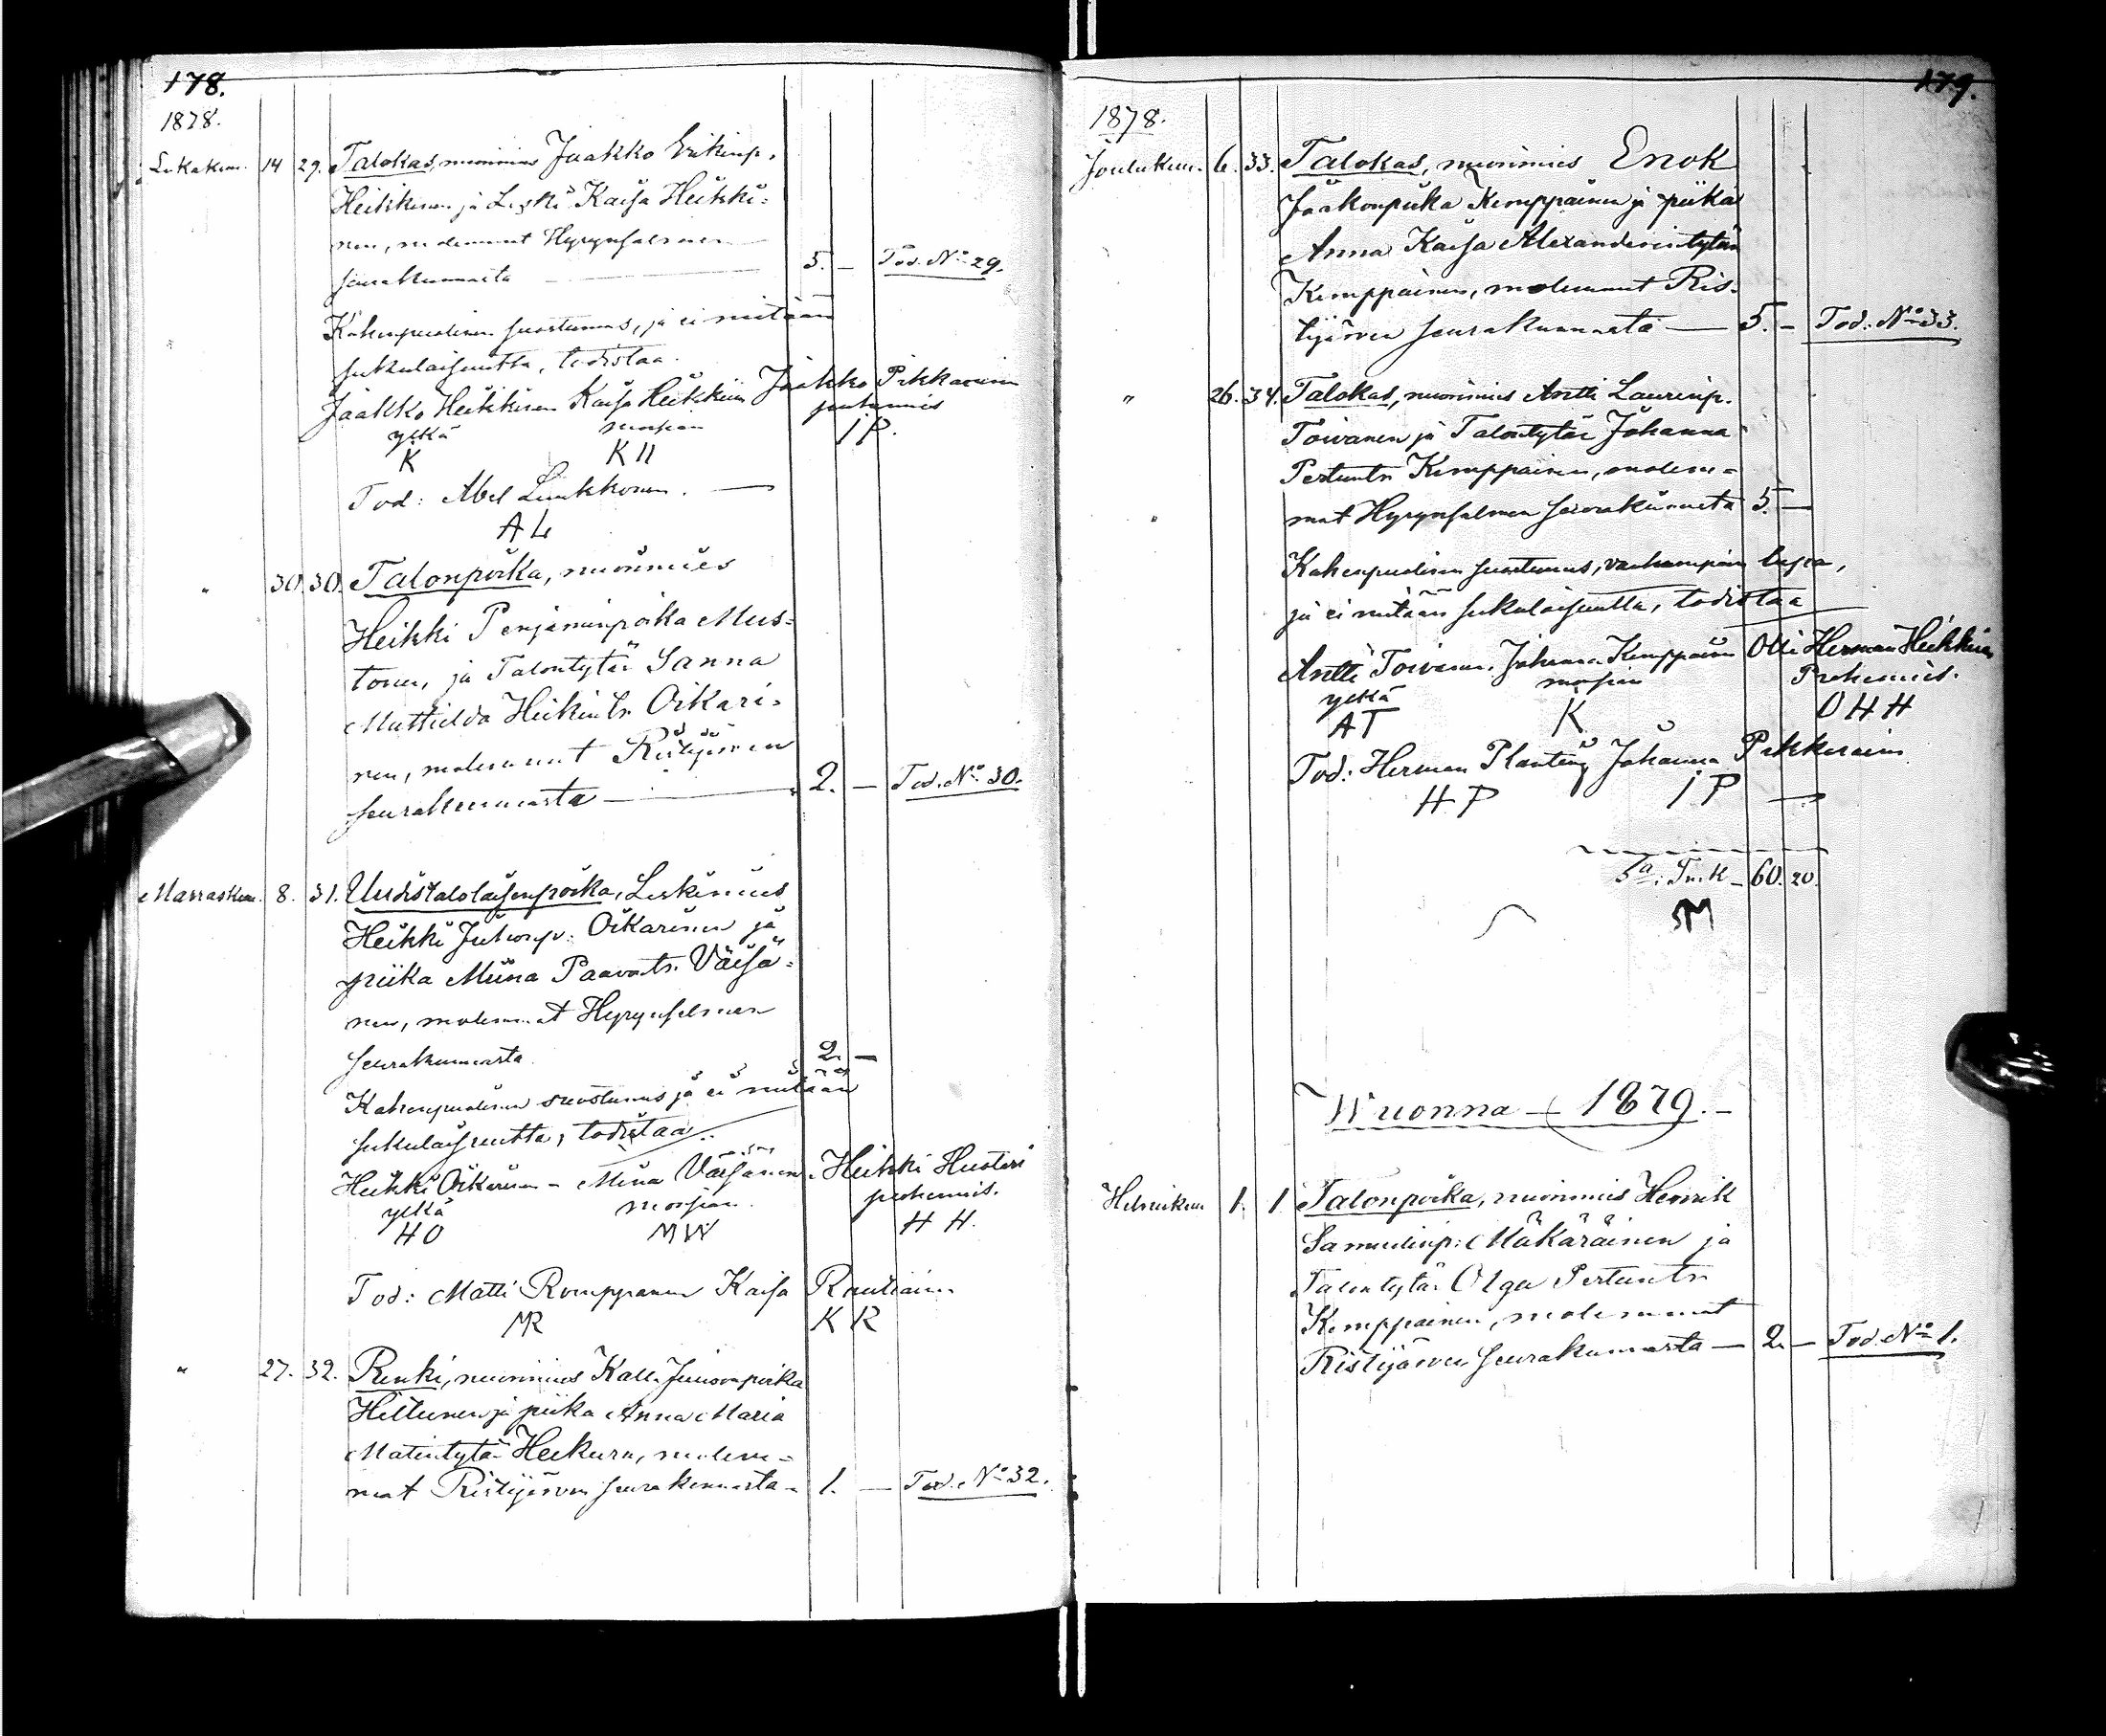 178.
1878.
Lokakuu. 14 29. Talokas, nuorimies Jaakko Erkinp.
Heikkinen ja Leski Kaisa Heikki-
nen, molemmat Hyrynsalmen
seurakunnasta — 5. — Tod. No 29.
Kahenpuolinen suostumus, ja ei mitään
sukulaisuutta, todistaa.
Jaakko Heikkinen Kaisa Heikkinen Jaakko Pikkarainen
ylkä morsian puhemies
K KH JP.
Tod: Abel Luukkonen. —
AL
" 30. 30. Talonpoika, nuorimies
Heikki Penjaminpoika Mus-
tonen, ja Talontytär Sanna
Mattielda Heikintr. Oikari-
nen, molemmat Ristijärven
seurakunnasta — 2. — Tod. No 30.
Marraskuu. 8. 31. Uudistalolaisenpoika, Leskimies
Heikki Juhonp. Oikarinen ja
piika Miina Paavontr. Väisä-
nen, molemmat Hyrynsalmen
seurakunnasta 2. —
Kahenpuolinen suostumus ja ei mitään
sukulaisuutta, todistaa.
Heikki Oikarinen - Miina Väisänen Heikki Husteri
ylkä morsian. puhemies.
HO MW HH.
Tod: Matti Romppanen Kaisa Rautiainen
MR KR
" 27. 32. Renki, nuorimies Kalle Juusonpoika
Hiltunen ja piika Anna Maria
Matintytär Heikura, molem-
mat Ristijärven seurakunnasta - 1. — Tod. No 32.
179.
1878.
Joulukuu. 6. 33. Talokas, nuorimies Enok
Jaakonpoika Kemppainen ja piika
Anna Kaisa Alexanderintytär
Kemppainen, molemmat Ris-
tijärven seurakunnasta — 5. — Tod: No 33.
" 26. 34. Talokas, nuorimies Antti Laurinp.
Toivanen ja Talontytär Johanna
Pertuntr. Kemppainen, molem-
mat Hyrynsalmen seurakunnasta 5. —
Kahenpuolinen suostumus, vanhempain lupa,
ja ei mitään sukulaisuutta, todistaa
Antti Toivanen. Johanna Kemppainen Olli Herman Heikkinen
ylkä morsian Puhemies.
AT K OHH
Tod: Herman Planting Johanna Pikkarainen
HP JP —
Sa: Smk — 60. 20.
SM
Wuonna — 1879. —
Helmikuu 1. 1 Talonpoika, nuorimies Henrik
Samulinp: Mäkäräinen ja
Talontytär Olga Pertuntr
Kemppainen, molemmat
Ristijärven seurakunnasta — 2. — Tod. No 1.